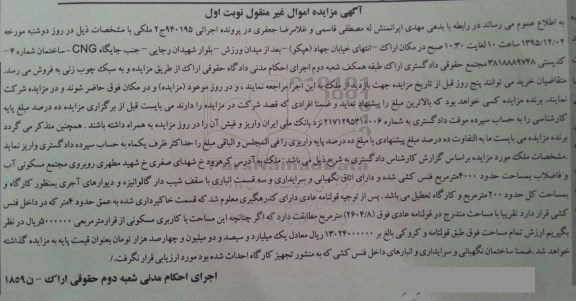 آگهی مزایده اموال غیر منقول نوبت اول
به اطلاع عموم می رساند در رابطه با بدهی مهدی ایرانمنش له مصطفی قاسمی و غلامرضا جعفری در پرونده اجرائی ۹۴۰۱۹۵ج۲ ملکی با مشخصات ذیل در روز دوشنبه مورخه
۱۳۹۵/۱۲/۰۲ ساعت ۱۰ لغایت ۱۰:۳۰ صبح در مکان اراک – انتهای خیابان جهاد (هپکو) – بعد از میدان ورزش – بلوار شهیدان رجایی – جنب جایگاه CNG – ساختمان شماره ۴ –
کدپستی ۳۸۱۸۸۸۹۷۷۸ مجتمع حقوقی دادگستری اراک طبقه همکف شعبه دوم اجرای احکام مدنی دادگاه حقوقی اراک از طریق مزایده و به سبک چوب زنی به فروش می رسد.
متقاضیان خرید می توانند پنج روز قبل از تاریخ مزایده جهت بازدید از ملک به این اجرا مراجعه نمایند، و در روز موعود (مزایده) و در مکان فوق حاضر شوند و در مزایده شرکت
نمایند. برنده مزایده کسی خواهد بود که بالاترین مبلغ را پیشنهاد نماید و ضمنا افرادی که قصد شرکت در مزایده را دارند می بایست قبل از برگزاری مزایده ده درصد مبلغ پایه
کارشناسی را به حساب سپرده موقت دادگستری به شماره ۲۱۷۱۲۹۵۳۱۰۰۶ نزد بانک ملی ایران واریز و فیش آن را در روز مزایده به همراه داشته باشند . همچنین متذکر می گردد
برنده مزایده می بایست ما به التفاوت ده درصد مبلغ پیشنهادی با مبلغ ده درصد پایه واریزی را فی المجلس و الباقی مبلغ را حداکثر ظرف یکماه به حساب سپرده دادگستری واریز نماید
.مشخصات ملک مورد مزایده براساس گزارش کارشناس دادگستری به شرح ذیل می باشد: ملک به آدرس کرهرود خ شهدای صفری خ شهید مطهری روبروی مجتمع مسکونی آب
و فاضلاب بمساحت حدود ۴۰۰۰مترمربع فنس کشی شده و دارای اتاق نگهبانی و سرایداری و سه قسمت انباری با سقف شیب دار گالوانیزه و دیوارهای آجری بمنظور کارگاه و
بمساحت کل حدود ۲۰۰مترمربع و کارگاه تعطیل می باشد. پس از توجیه قولنامه عادی دارای کدرهگیری معلوم شد که قسمت خاکبرداری شده به عمق حدود ۴متر که در داخل فنس
کشی قرار دارد تقریبا با مساحت مندرج در قولنامه عادی فوق (۲۶۰۴/۸) مترمربع مطابقت دارد که اگر چنانچه این مساحت با کاربری مسکونی از قرار مترمربعی ۵۰۰۰۰۰۰ریال در نظر
بگیریم ارزش تمام مساحت فوق طبق قولنامه و کروکی بالغ بر ۱۳۰۲۴۰۰۰۰۰۰ ریال معادل یک میلیارد و سیصد و دو میلیون و چهارصد هزار تومان بعنوان قیمت پایه به مزایده گذاشته
خواهد شد.ضمنا ساختمان نگهبانی و سرایداری و انبارهای داخل فنس کشی که به منشور تجهیز کارگاه احداث شده بود مورد ارزیابی قرار نگرفت./
اجرای احکام مدنی شعبه دوم حقوقی اراک – ن۱۸۵۹